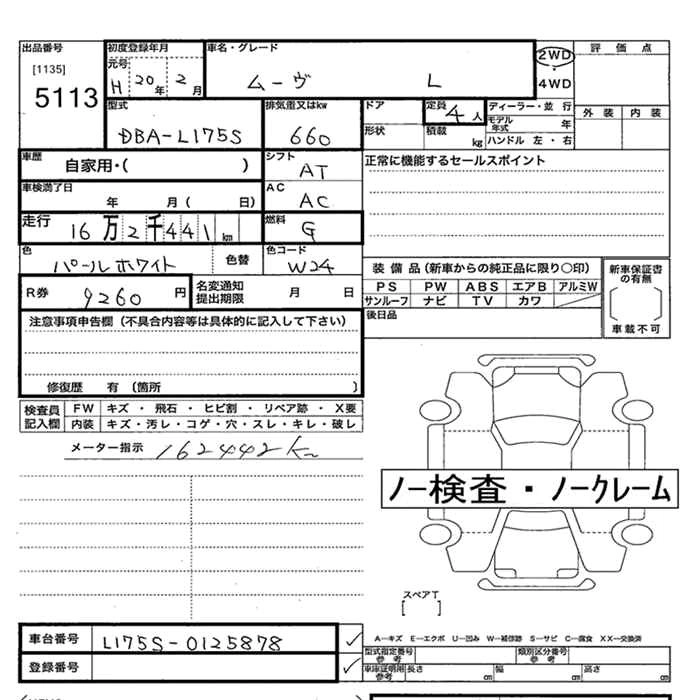 出品番号 初度登録年月 車名・グレード 2WD 評価点
[1135] 元号 ・
5113 H 20年 2月 ムーヴ L 4WD
型式 排気量又はkw ドア 定員 4人 ディーラー・並行 外装 内装
DBA-L175S 660 形状 積載 kg モデル年式 年
ハンドル 左・右
車歴 自家用・( ) シフト AT 正常に機能するセールスポイント
車検満了日 年 月( 日) AC AC
走行 16万2千441km 燃料 G
色 パールホワイト 色替 色コード W24
装備品(新車からの純正品に限り○印) 新車保証書の有無
R券 9260円 名変通知提出期限 月 日 PS PW ABS エアB アルミW
サンルーフ ナビ TV カワ
注意事項申告欄(不具合内容等は具体的に記入して下さい) 後日品 車載不可
修復歴 有(箇所 )
検査員記入欄 FW キズ・飛石・ヒビ割・リペア跡・X要
内装 キズ・汚レ・コゲ・穴・スレ・キレ・破レ
メーター指示 162442Km
ノー検査・ノークレーム
スペアT
[ ]
車台番号 L175S-0125878 A-キズ E-エクボ U-凹み W-補修跡 S-サビ C-腐食 XX-交換済
型式指定番号 参考 類別区分番号 参考
登録番号 車庫証明用 参考 長さ cm 幅 cm 高さ cm